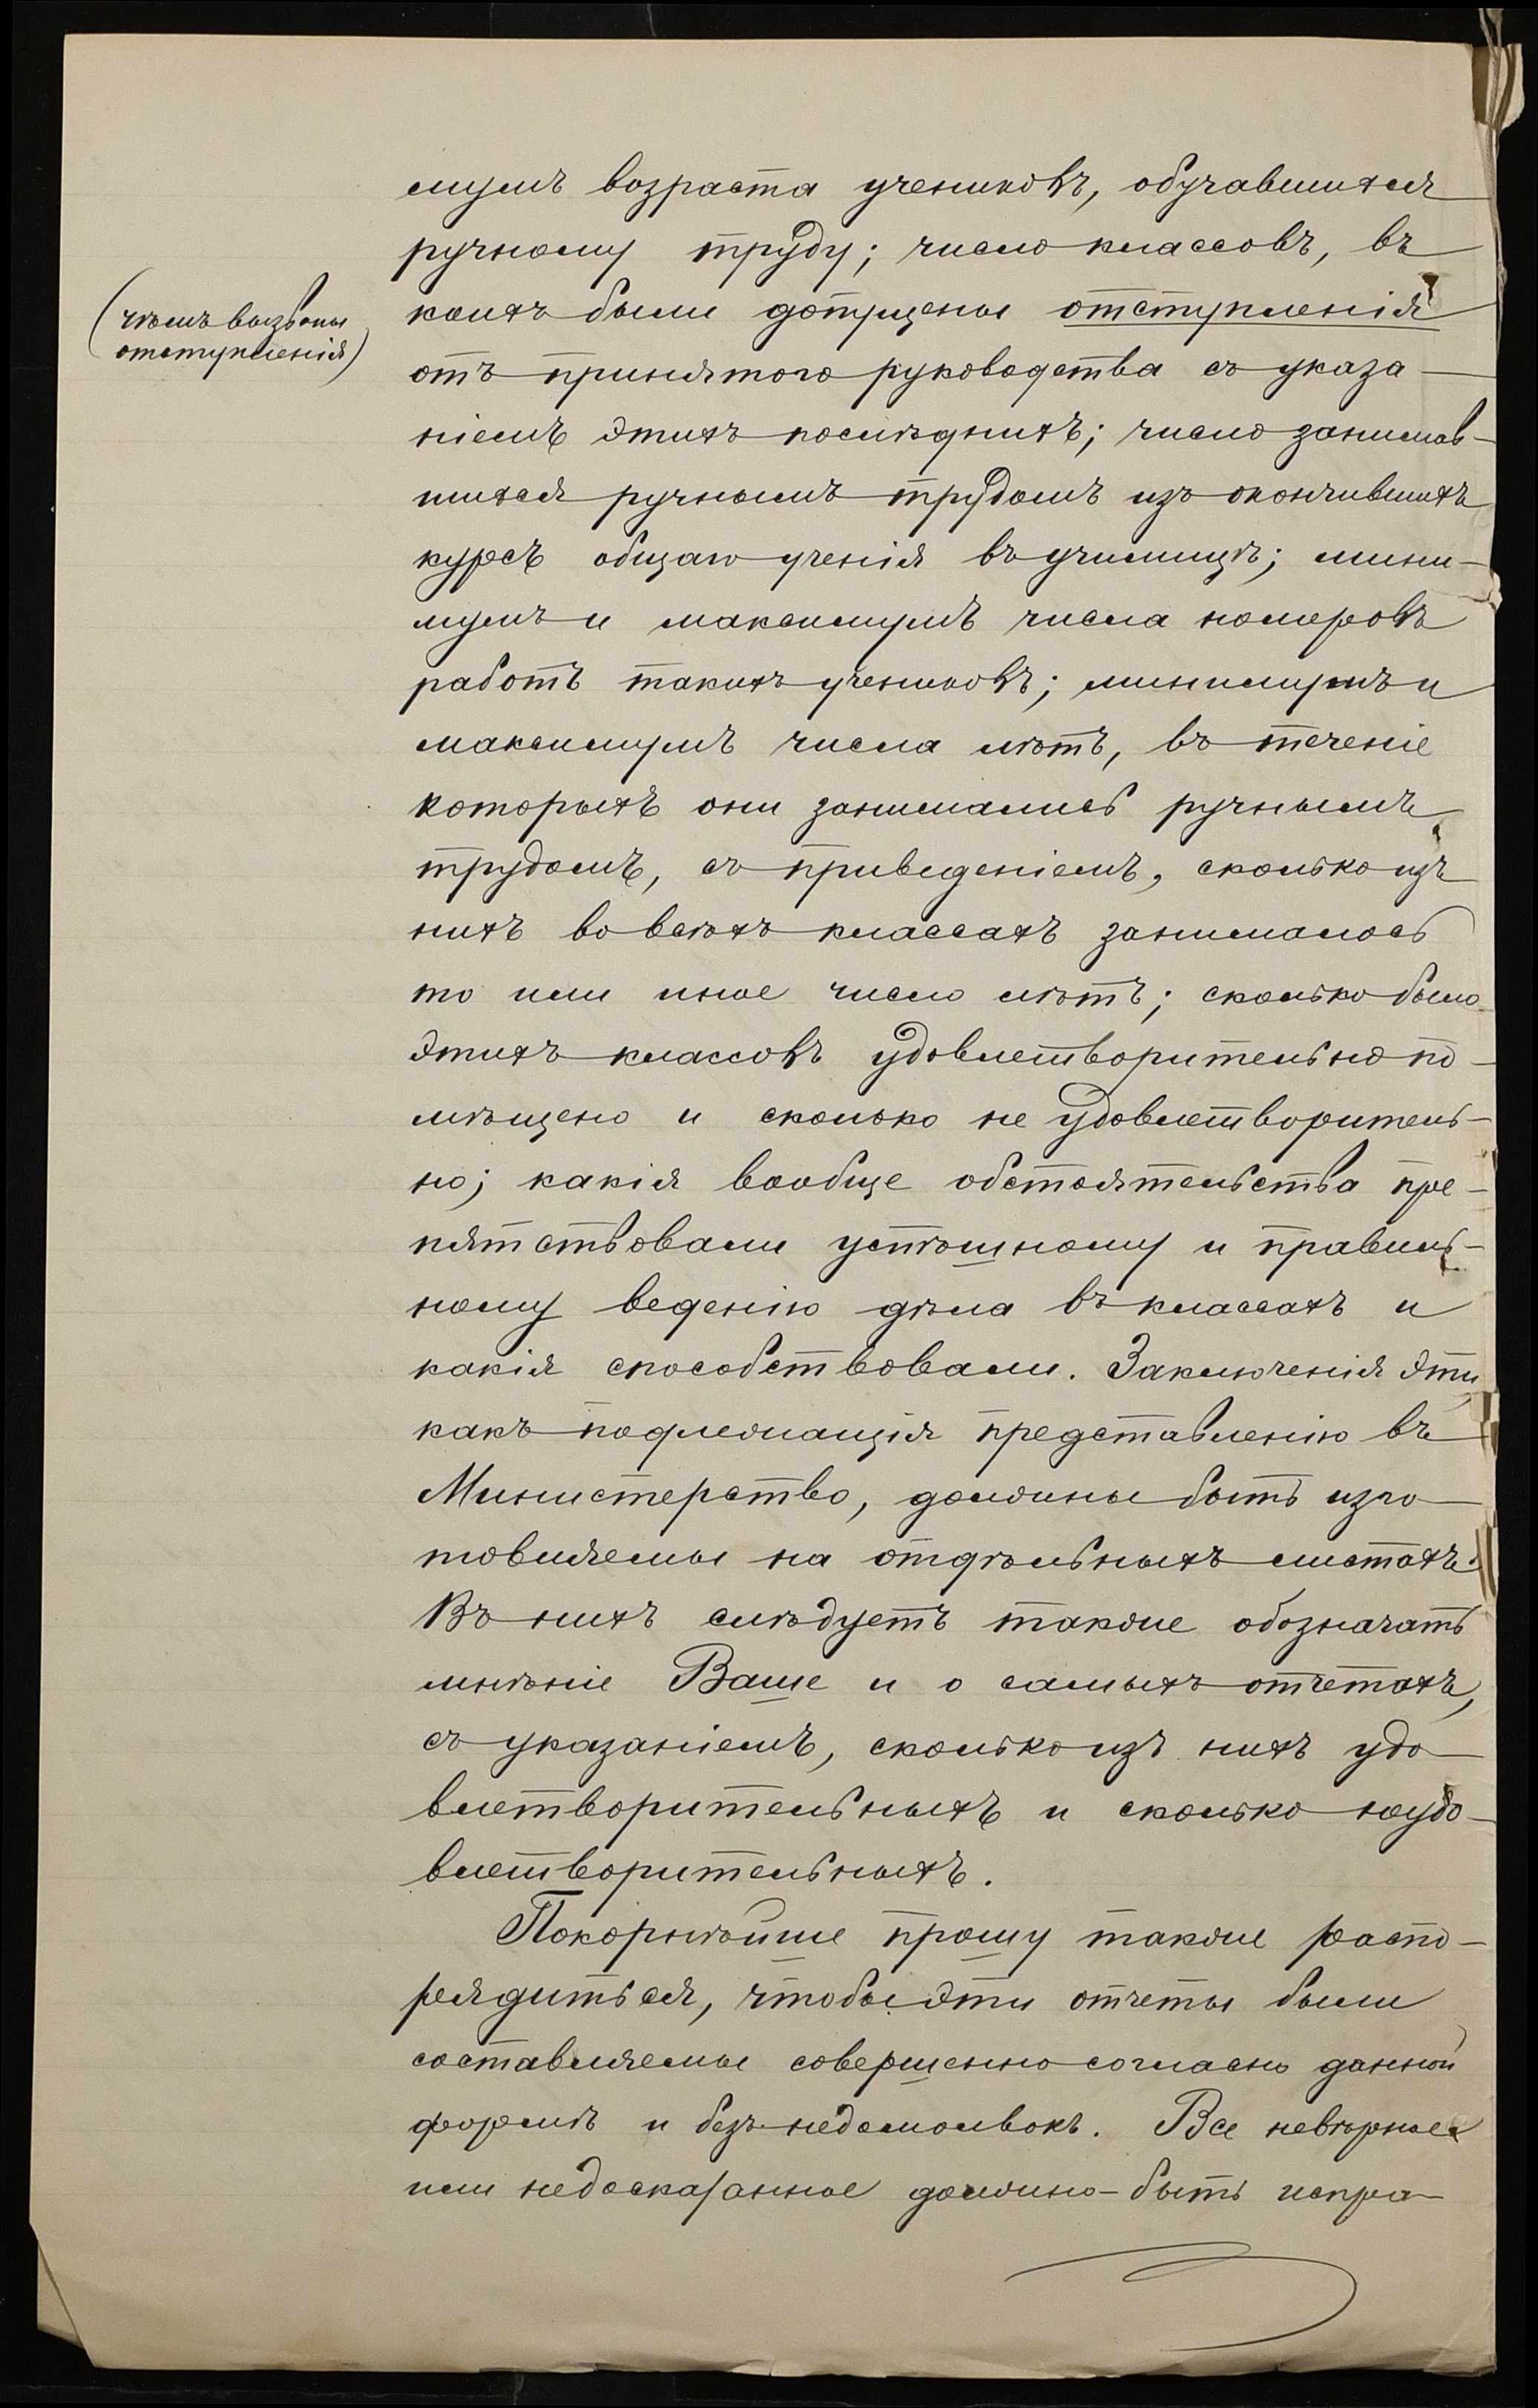 мумъ возраста учениковъ, обучавшихся
ручному труду; число классовъ, въ
(чѣмъ вызваны
отступленія)
коихъ были допущены отступленія
отъ принятого руководства съ указа-
ніемъ этихъ послѣднихъ; число занимав-
шихся ручнымъ трудомъ изъ окончившихъ
курсъ общаго ученія въ училищѣ; мини-
мумъ и максимумъ числа номеровъ
работъ такихъ учениковъ; минимумъ и
максимумъ числа лѣтъ, въ теченіе
которыхъ они занимались ручнымъ
трудомъ, съ приведеніемъ, сколько изъ
нихъ во всѣхъ классахъ занималось
то или иное число лѣтъ; сколько было
этихъ классовъ удовлетворительно по-
мѣщено и сколько не удовлетворитель-
но; какія вообще обстоятельства пре-
пятствовали успѣшному и правиль-
ному веденію дѣла въ классахъ и
какія способствовали. Заключенія эти
какъ подлежащія представленію въ
Министерство, должны быть изго-
товляемы на отдѣльныхъ листахъ.
Въ нихъ слѣдуетъ также обозначать
мнѣніе Ваше и о самыхъ отчетахъ,
съ указаніемъ, сколько изъ нихъ удо-
влетворительныхъ и сколько неудо-
влетворительныхъ.
Покорнѣйше прошу также распо-
рядиться, чтобы эти отчеты были
составляемы совершенно согласно данной
формѣ и безъ недомолвокъ. Все невѣрное
или недосказанное должно быть испра-